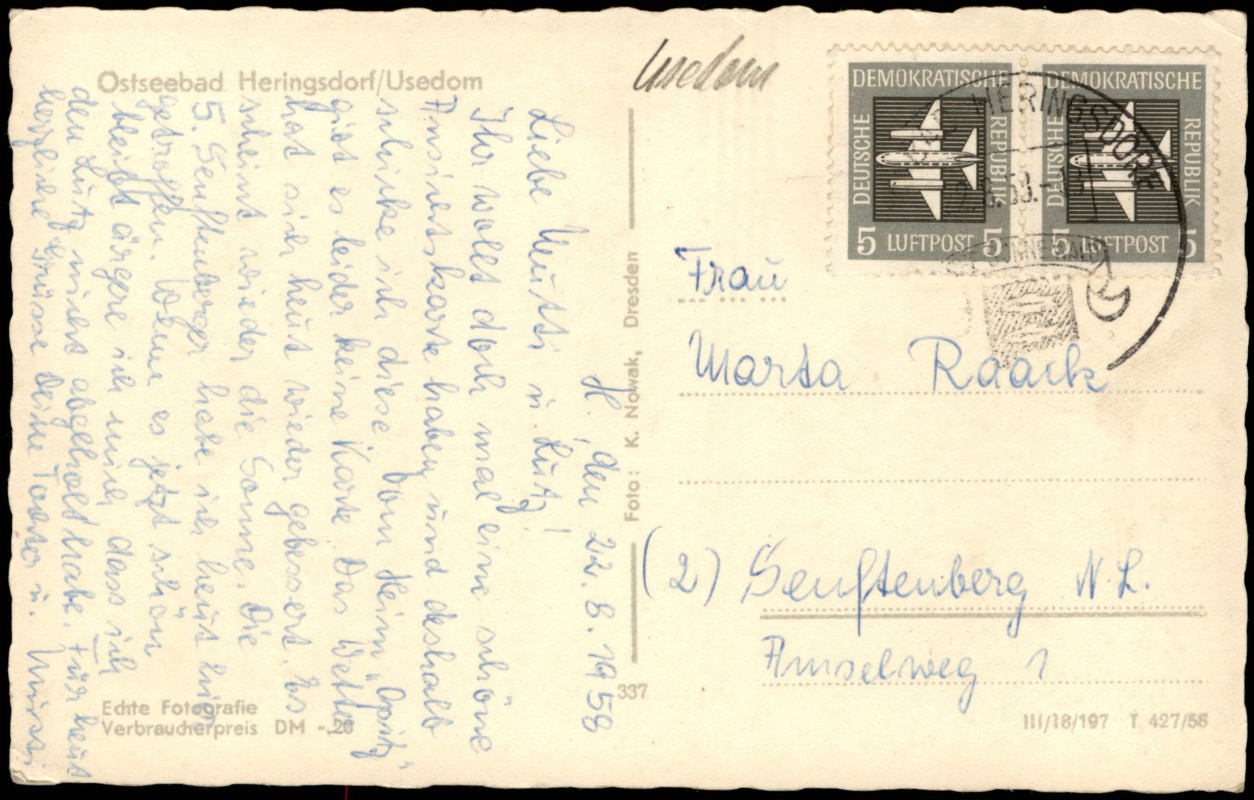 Ostseebad Heringsdorf/Usedom
Usedom
H. den 22.8.1958
Liebe Mutti u. Lutz!
Ihr wollt doch mal eine schöne
Ansichtskarte haben und deshalb
schicke ich diese. Vom Heim "Opitz"
gibt es leider keine Karte. Das Wetter
hat sich heut wieder gebessert. Es
scheint wieder die Sonne. Die
5. Senftenberger habe ich heut hier
getroffen. Wenn es jetzt schön
bleibt ärgere ich mich, dass ich
den Lutz nicht abgeholt habe. Für heut
herzliche Grüsse Deine Tochter u.
Echte Fotografie
Verbraucherpreis DM -.20
Foto: K. Nowak, Dresden
337
DEUTSCHE DEMOKRATISCHE REPUBLIK
5 LUFTPOST 5
DEUTSCHE DEMOKRATISCHE REPUBLIK
5 LUFTPOST 5
HERINGSDORF
Frau
Marta Raack
(2) Senftenberg N.L.
Amselweg 1
III/18/197 T 427/58